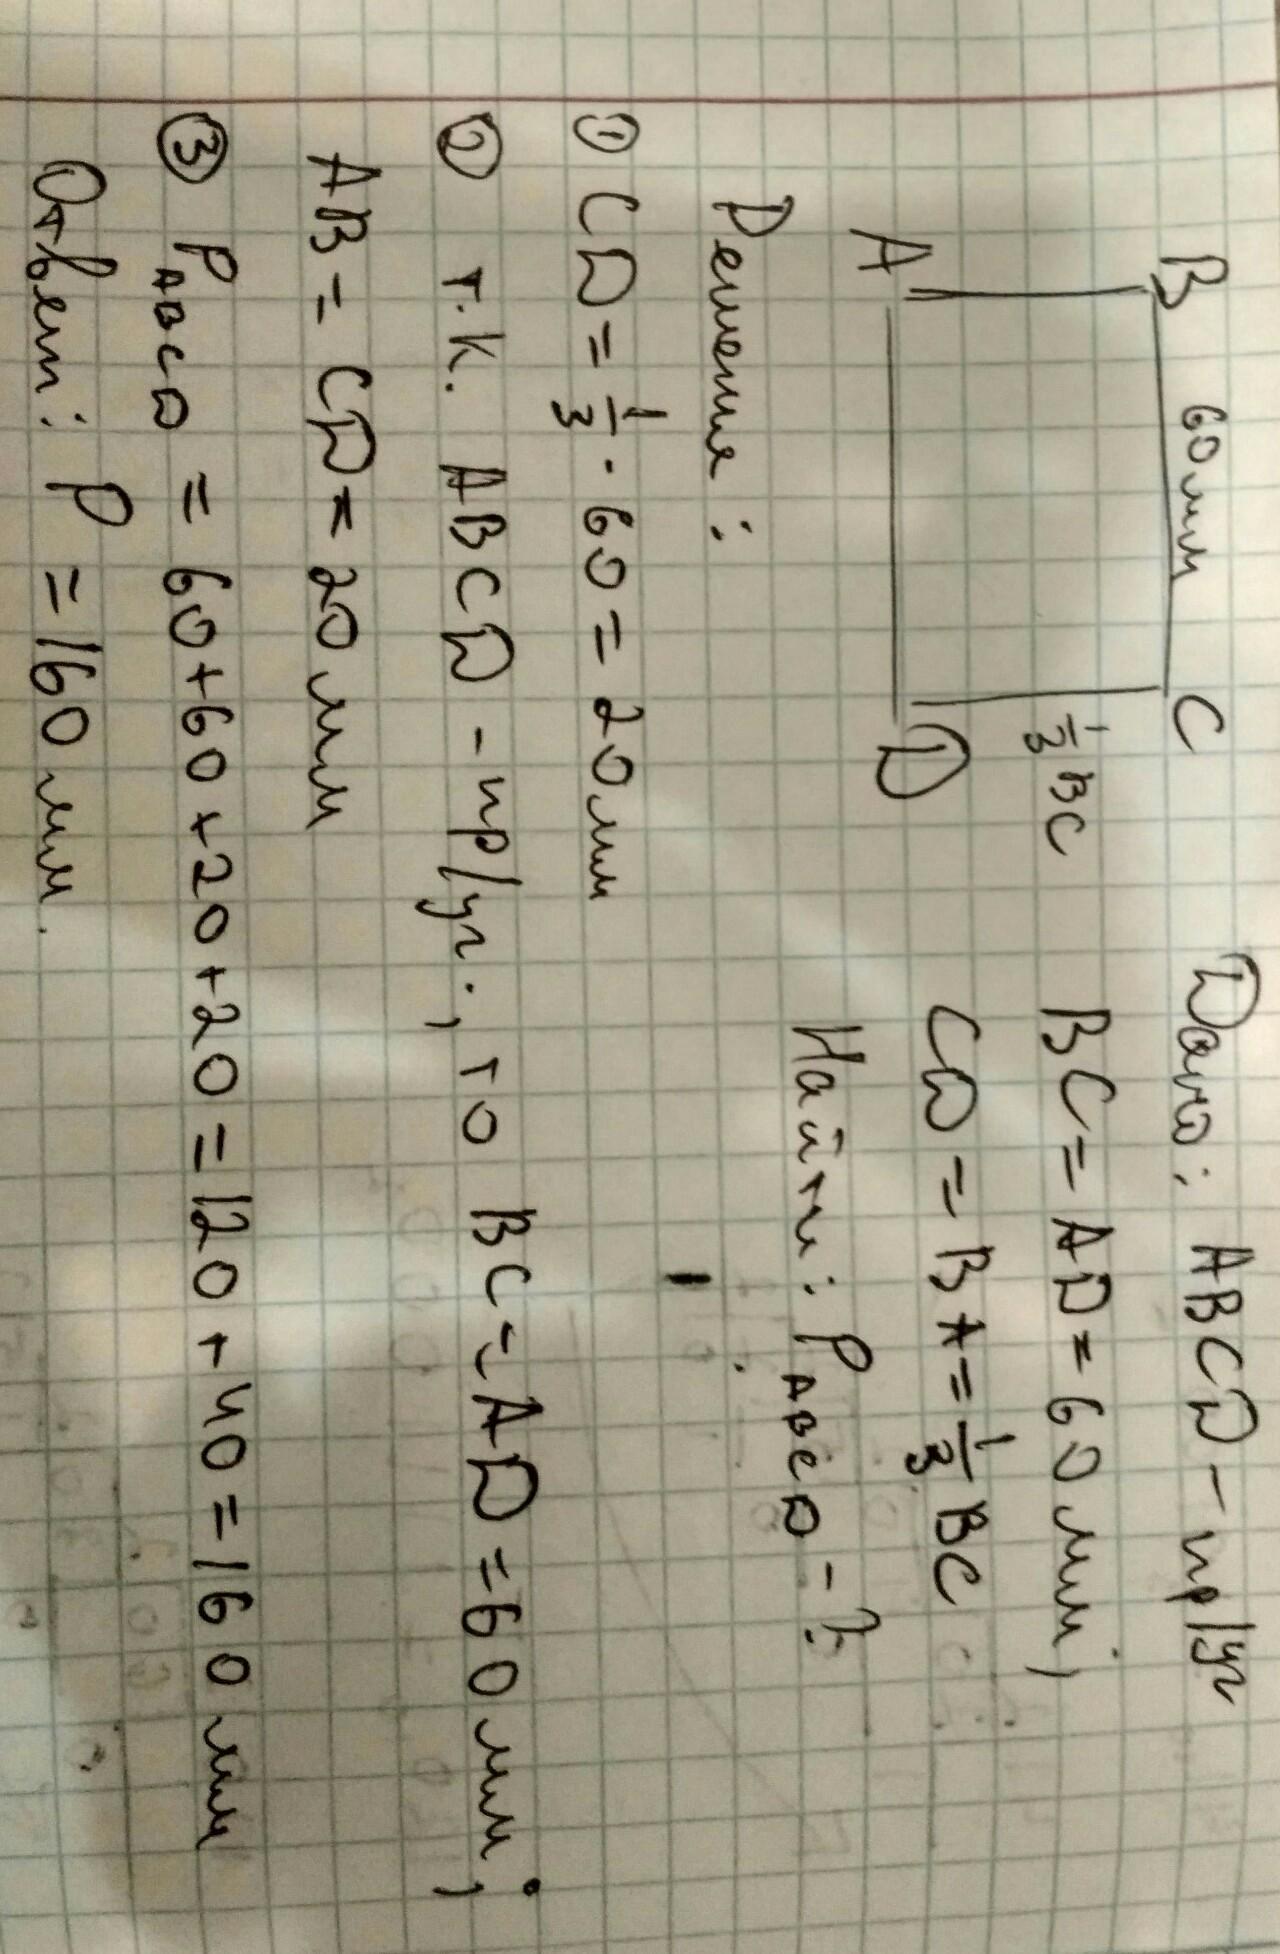 B 60 мм C
1/3 BC
A D
Дано: ABCD - пр/уг
BC = AD = 60 мм,
CD = BA = 1/3 BC
Найти: P ABCD - ?
Решение:
① CD = 1/3 · 60 = 20 мм
② т.к. ABCD - пр/уг., то BC = AD = 60 мм;
AB = CD = 20 мм
③ P ABCD = 60+60+20+20 = 120+40 = 160 мм
Ответ: P = 160 мм.